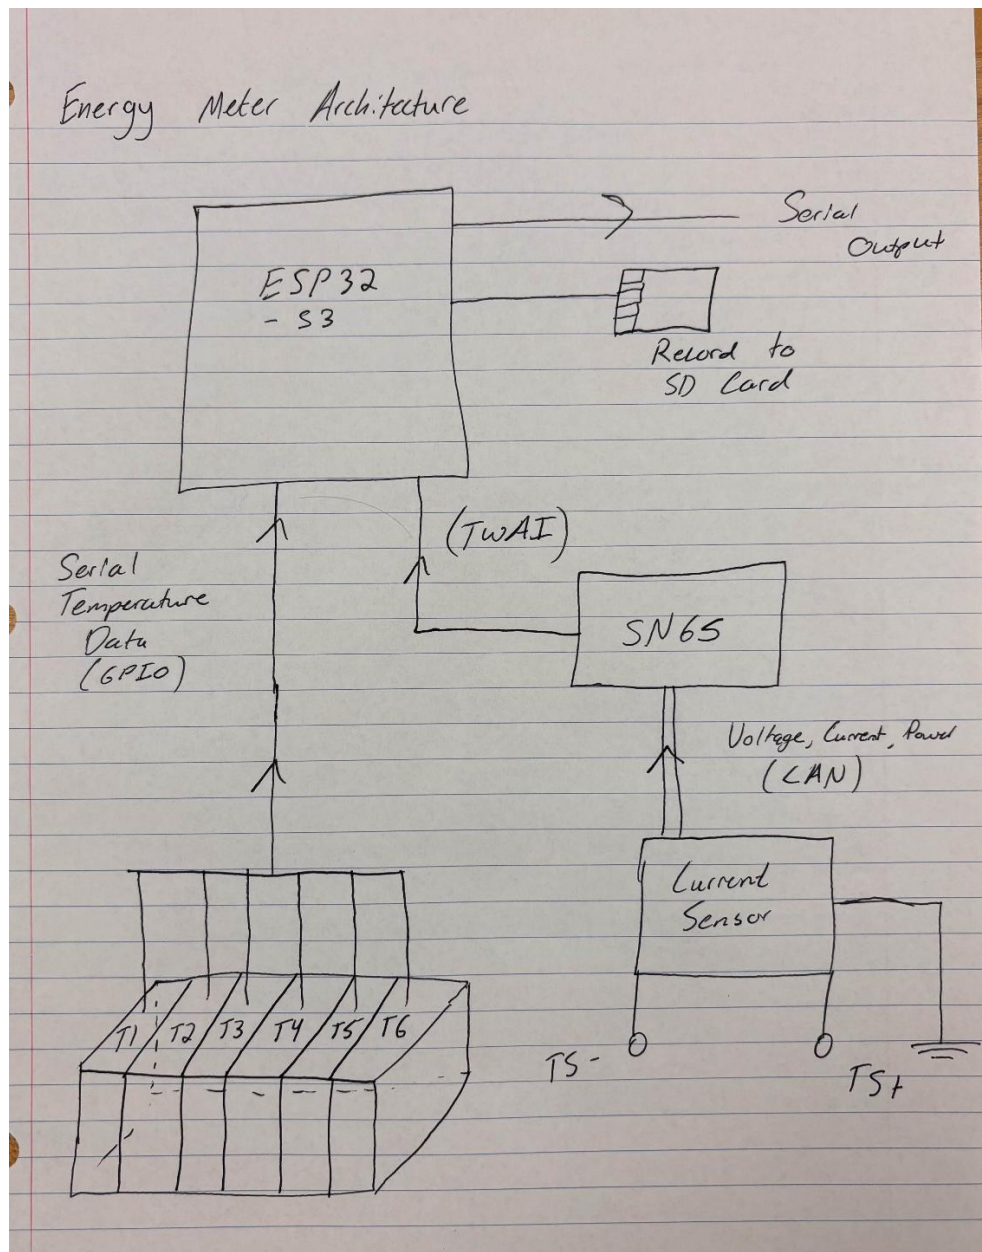 Energy Meter Architecture
ESP32
- S3
Serial
Output
Record to
SD Card
(TWAI)
Serial
Temperature
Data
(GPIO)
SN65
Voltage, Current, Power
(CAN)
Current
Sensor
T1 T2 T3 T4 T5 T6
TS-
TS+